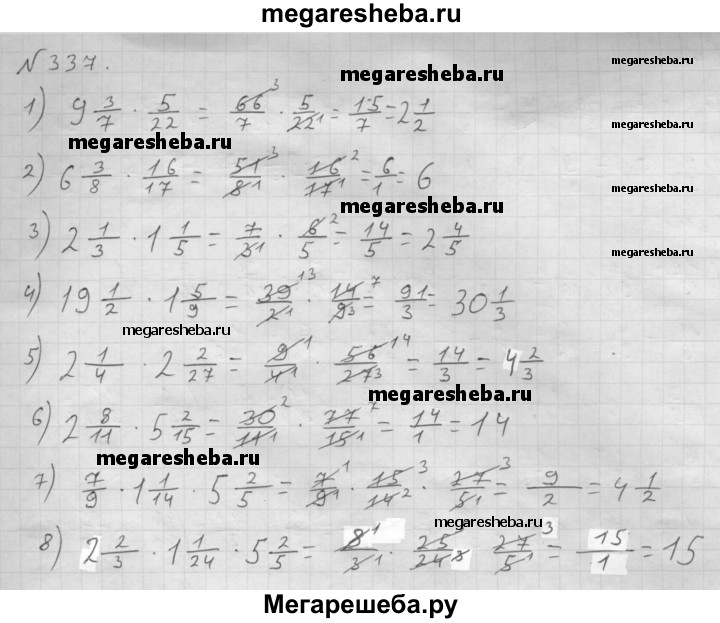 megaresheba.ru
№ 337.
megaresheba.ru
megaresheba.ru
1) 9 3/7 · 5/22 = 66³/7 · 5/22₁ = 15/7 = 2 1/2
megaresheba.ru
megaresheba.ru
2) 6 3/8 · 16/17 = 51³/8₁ · 16²/17₁ = 6/1 = 6
megaresheba.ru
megaresheba.ru
3) 2 1/3 · 1 1/5 = 7/3₁ · 6²/5 = 14/5 = 2 4/5
megaresheba.ru
4) 19 1/2 · 1 5/9 = 39¹³/2₁ · 14⁷/9₃ = 91/3 = 30 1/3
megaresheba.ru
megaresheba.ru
5) 2 1/4 · 2 2/27 = 9¹/4₁ · 56¹⁴/27₃ = 14/3 = 4 2/3
megaresheba.ru
megaresheba.ru
6) 2 8/11 · 5 2/15 = 30²/11₁ · 77⁷/15₁ = 14/1 = 14
megaresheba.ru
7) 7/9 · 1 1/14 · 5 2/5 = 7¹/9₁ · 15³/14₂ · 27³/5₁ = 9/2 = 4 1/2
megaresheba.ru
8) 2 2/3 · 1 1/24 · 5 2/5 = 8¹/3₁ · 25/24₈ 27³/5₁ = 15/1 = 15
Мегарешеба.ру